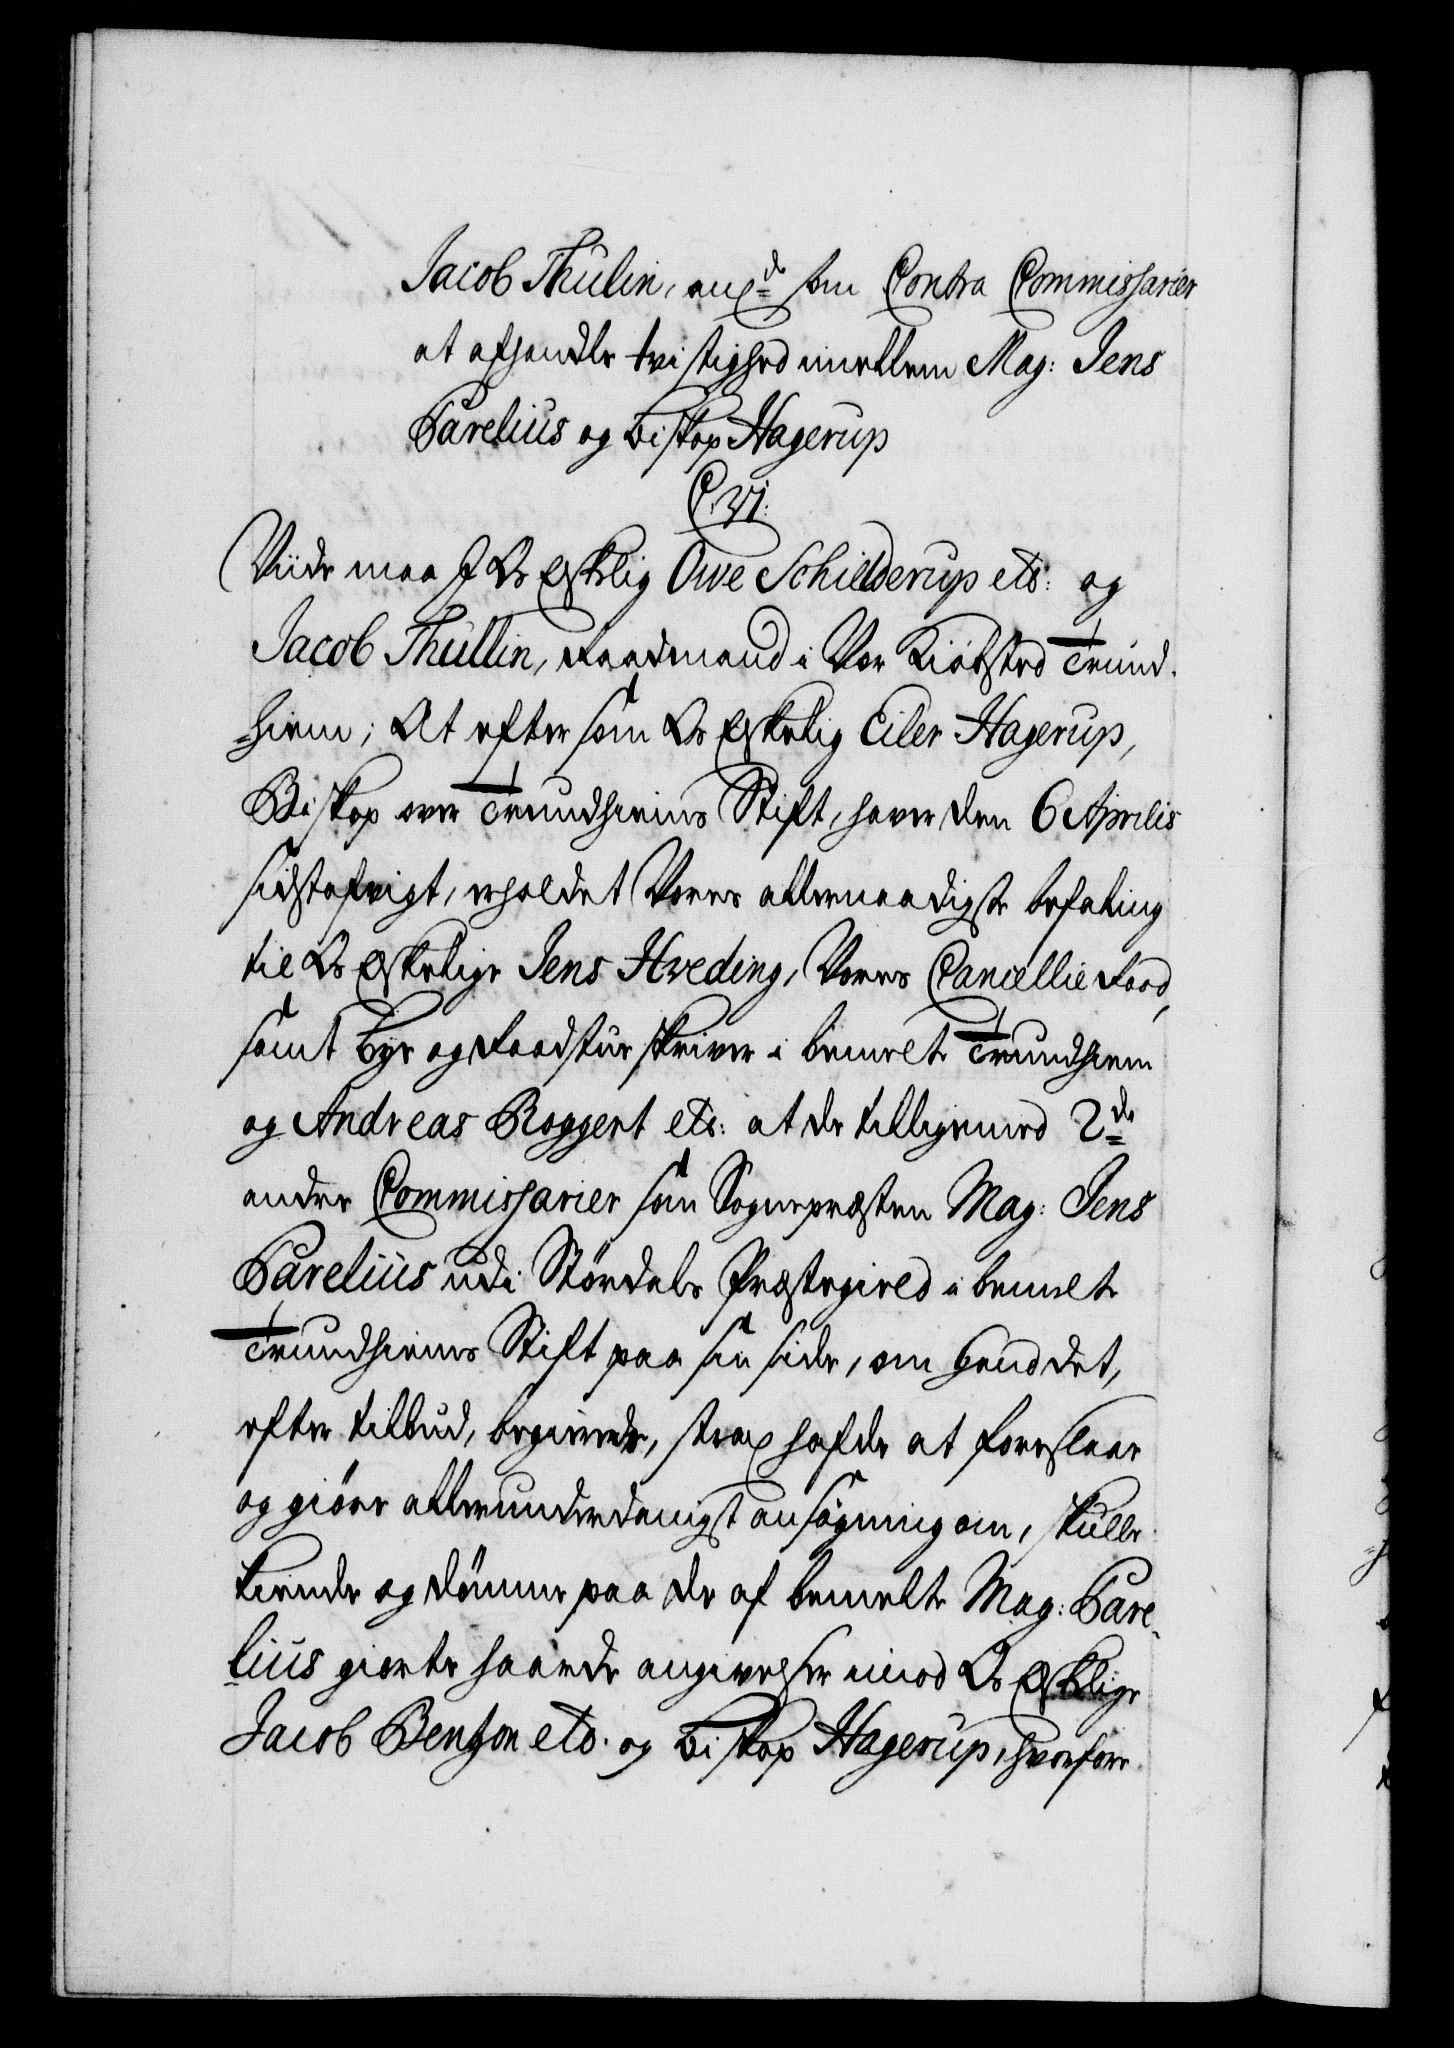 Jacob Thulin, anl:de som Contra Commissarier
at afhandle tvistighed imellem Mag: Jens
Parelius og Biskop Hagerup
C. VI:
Viide maa I Os Elskelig Owe Schielderup etc: og
Jacob Thullin, Raadmand i Vor Kiöbsted Trund-
hiem; At eftersom Os Elskelig Eiler Hagerup,
Biskop over Trundhiems Stift, haver den 6 Aprilis
sidstafvigt, erholdet Vores allernaadigste befaling
til Os Elskelige Jens Hveding, Vores Cancellie Raad,
samt Bye og Raadstue skriver i bemelte Trundhiem
og Andreas Boggert etc: at de tilligemed 2de
andre Commissarier som Sognepræsten Mag: Jens
Parelius udi Stördals Præstegield i bemelte
Trundhiems Stift paa sin side, om hand det,
efter tilbud, begierede, strax hafde at foreslaae
og giöre allerunderdanigst ansögning om, skulle
kiende og dömme paa de af bemelte Mag: Pare-
lius giorte haarde angivelser imod Os Elskelige
Jacob Benzon etc. og Biskop Hagerup, hvorfore